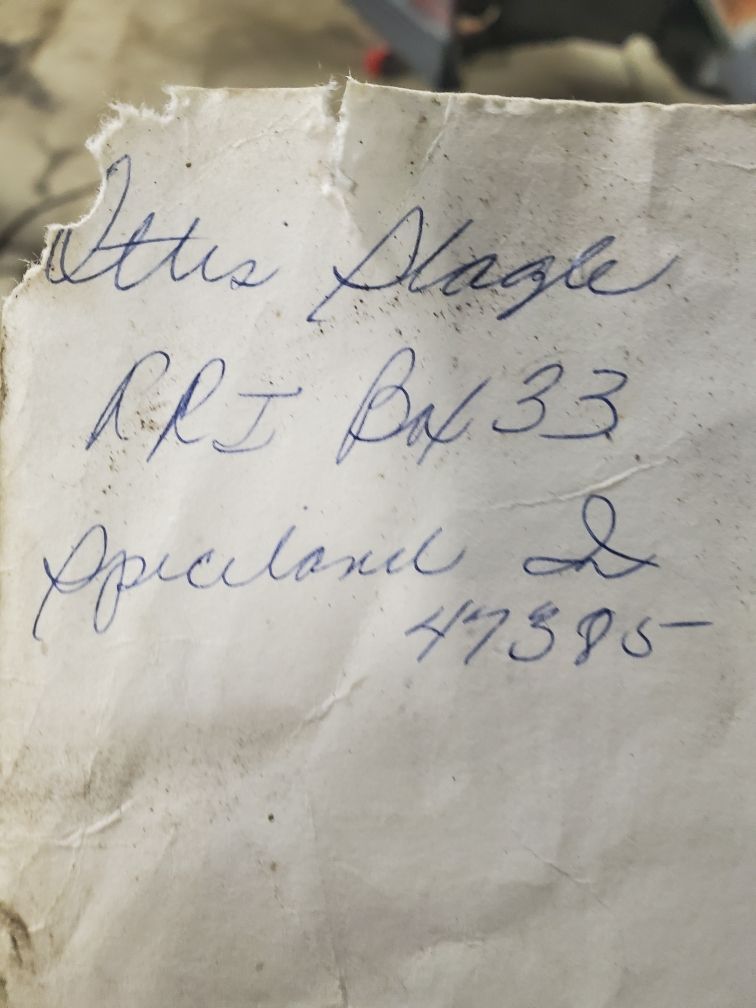 Ottis Slagle
RR I Box 33
Spiceland In
47385